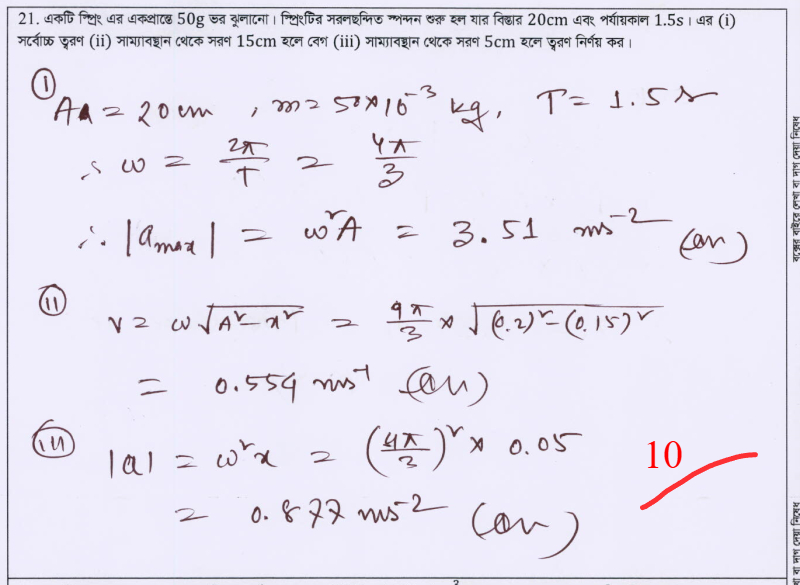 21. একটি স্প্রিং এর একপ্রান্তে 50g ভর ঝুলানো। স্প্রিংটির সরলছন্দিত স্পন্দন শুরু হল যার বিস্তার 20cm এবং পর্যায়কাল 1.5s। এর (i)
সর্বোচ্চ ত্বরণ (ii) সাম্যাবস্থান থেকে সরণ 15cm হলে বেগ (iii) সাম্যাবস্থান থেকে সরণ 5cm হলে ত্বরণ নির্ণয় কর।
(i)
A = 20 cm , m = 50×10⁻³ kg, T = 1.5 s
∴ ω = 2π/T = 4π/3
∴ |a_max| = ω²A = 3.51 ms⁻² (Ans)
(ii)
v = ω√(A²-x²) = 4π/3 × √((0.2)²-(0.15)²)
= 0.554 ms⁻¹ (Ans)
(iii)
|a| = ω²x = (4π/3)² × 0.05
= 0.877 ms⁻² (Ans)
10
বক্সের বাইরে লেখা বা দাগ দেয়া নিষেধ
বা দাগ দেয়া নিষেধ